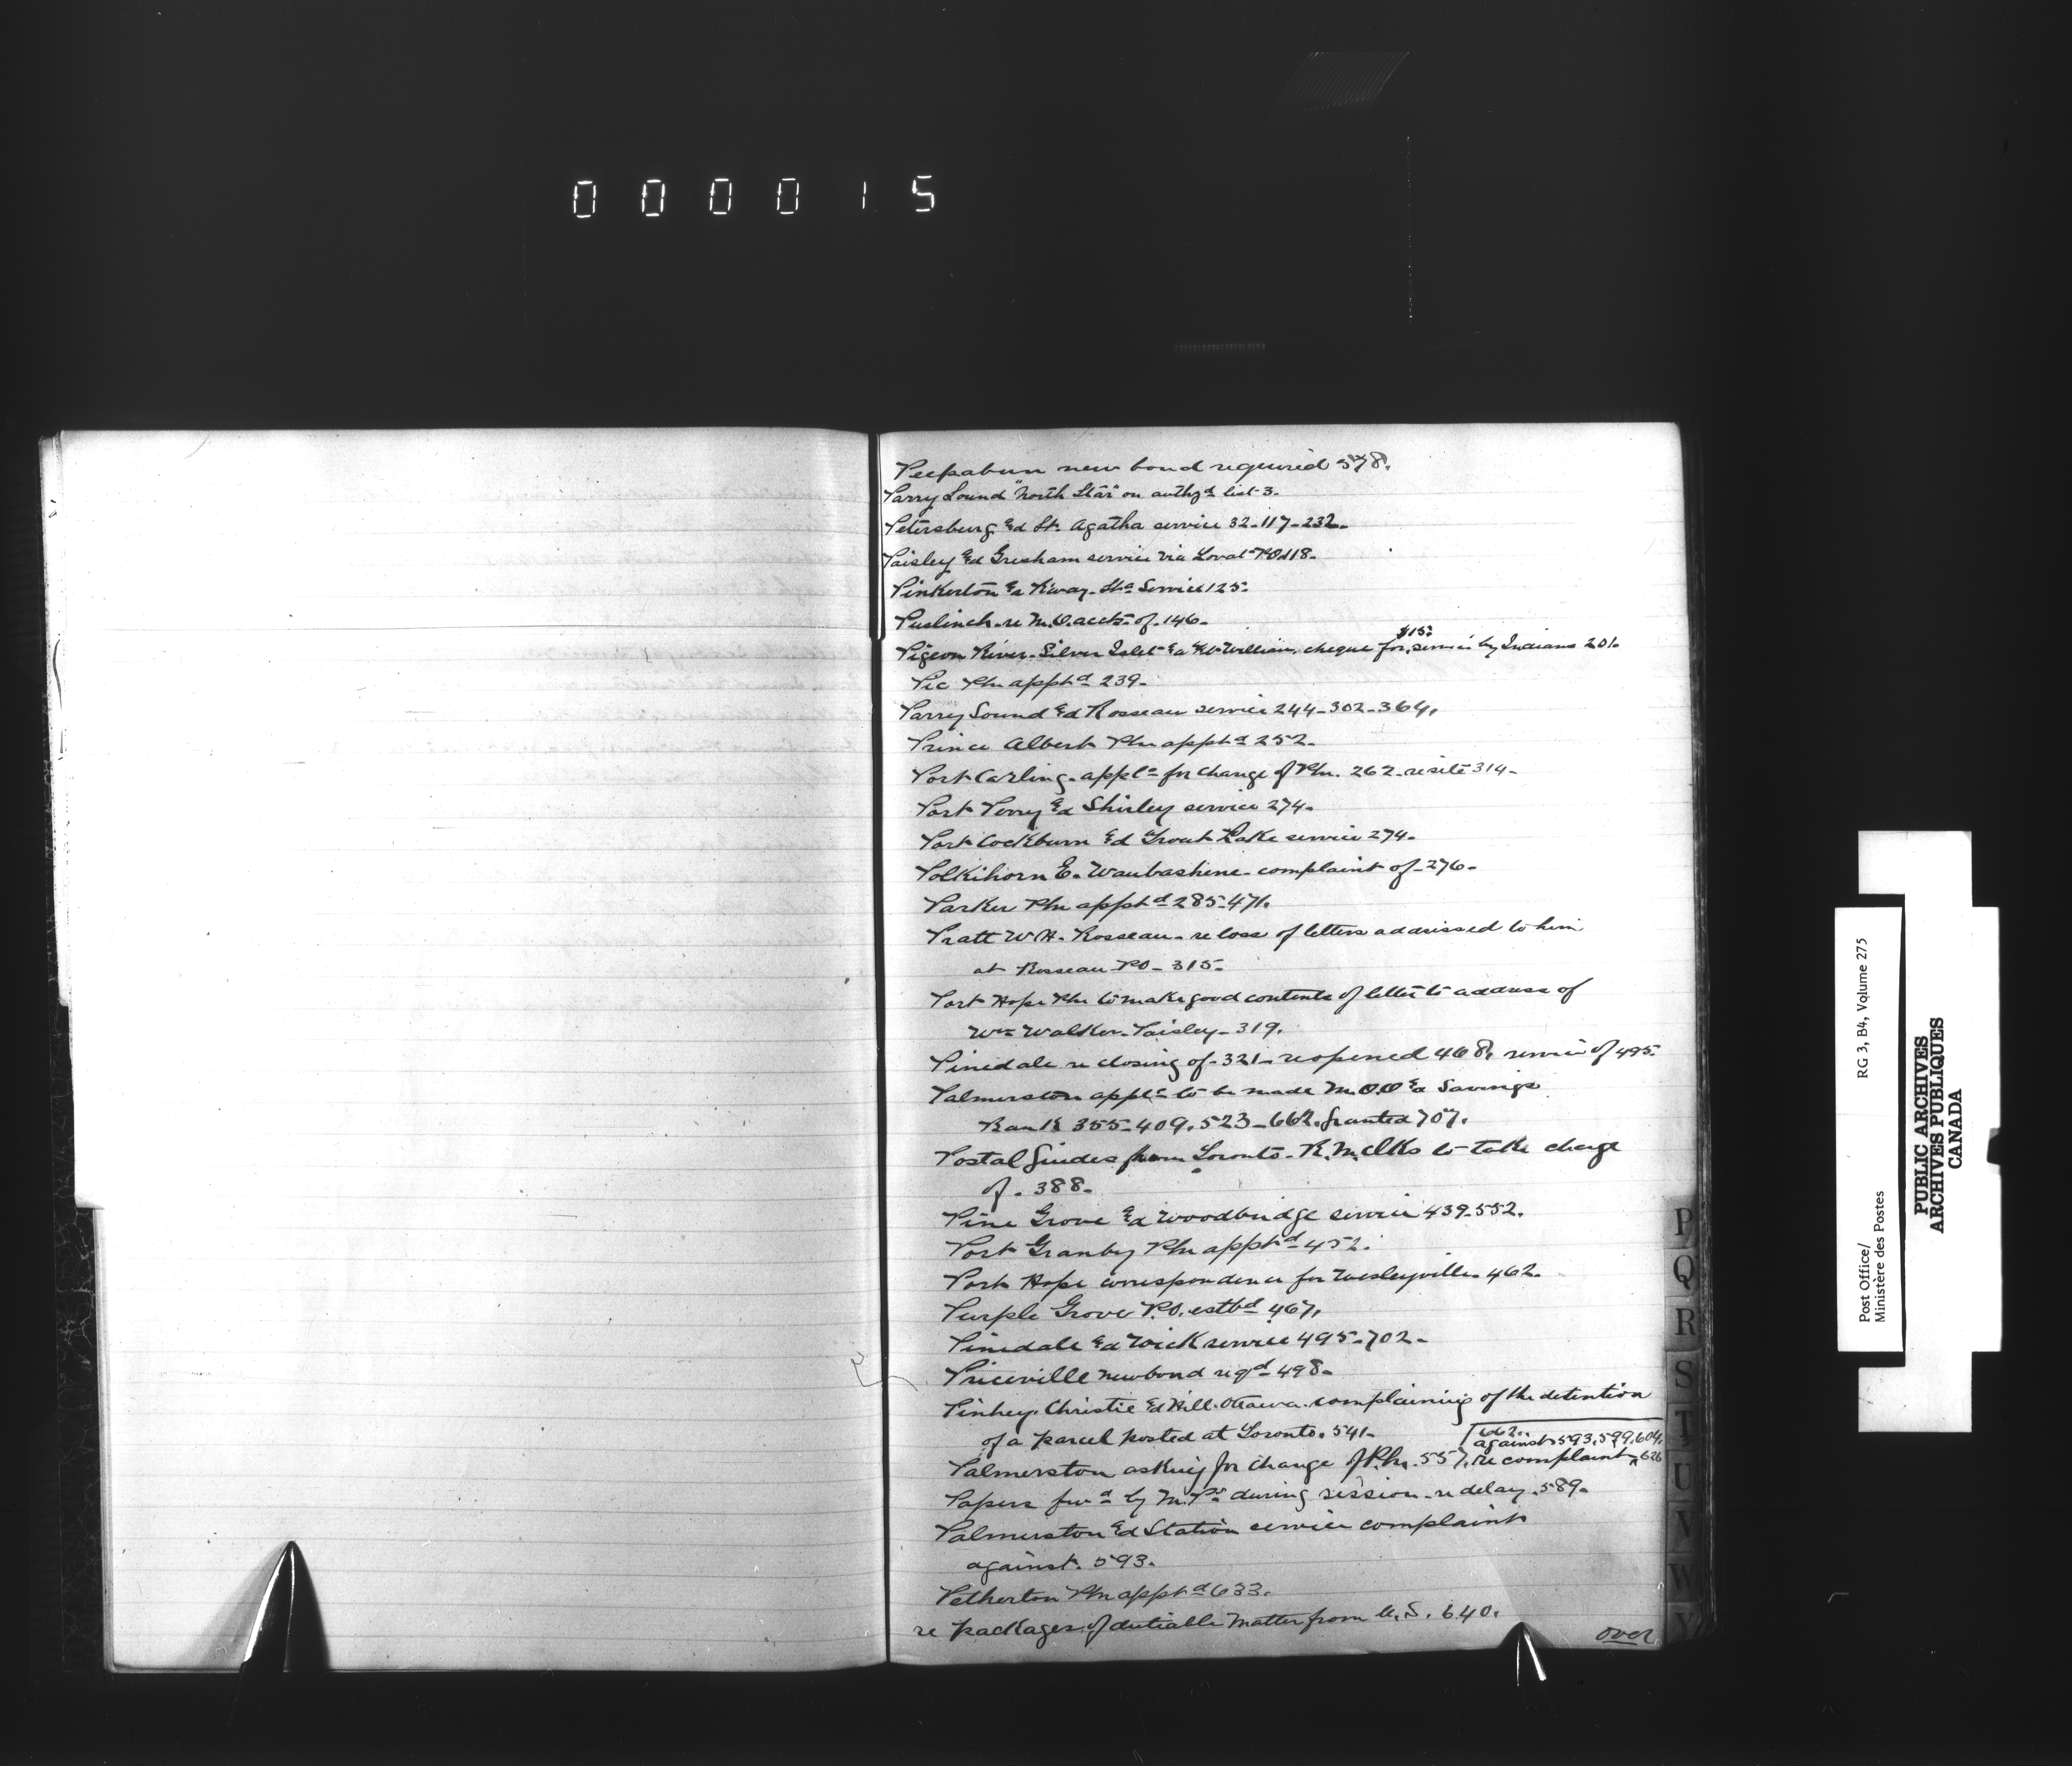 000015
Peepabun new bond required 578.
Parry Sound "North Star" on authzd list 3.
Petersburg &d St. Agatha service 32-117-232-
Paisley &d Gresham service via Lovat PO 118-
Pinkerton &d R'way Sta Service 125-
Puslinch re M.O. accts of 146-
$15-
Pigeon River. Silver Islet &d Ft William, cheque for service by Indians 201-
Pic Pm apptd 239-
Parry Sound &d Rosseau service 244-302-364.
Prince Albert Pm apptd 252-
Port Carling. appln for change of Pm. 262. re site 314-
Port Perry &d Shirley service 274-
Port Cockburn &d Trout Lake service 274-
Polkihorn E. Waubashine. complaint of 276-
Parker Pm apptd 285-471.
Pratt W.H. Rosseau. re loss of letters addressed to him
at Rosseau PO - 315-
Port Hope Pm to make good contents of letter to address of
Wm Walker. Paisley - 319.
Pinedale re closing of 321 - reopened 468, service of 495-
Palmerston appln to be made M.O.O &d Savings
Bank 355-409.523-662. granted 707.
Postal Guides from Toronto - R.M. Clks to take charge
of. 388-
Pine Grove &d Woodbridge service 439-552.
Port Granby Pm apptd 452.
Port Hope correspondence for Wesleyville 462.
Purple Grove P.O. estbd 467,
Pinedale &d Wick service 495-702-
Priceville new bond reqd 498-
Pinhey. Christie &d Hill. Ottawa. complaining of the detention
of a parcel posted at Toronto. 541-
662.
against 593,599,604,
Palmerston asking for change of P.M. 557, re complaint 626
Papers fwd by M.Ps during session. re delay. 589-
Palmerston &d Station service complaint
against. 593.
Petherton Pm apptd 633.
re packages of dutiable matter from U.S. 640.
over
P
Q
R
S
T
U
V
W
Y
Post Office/
Ministère des Postes
RG 3, B4, Volume 275
PUBLIC ARCHIVES
ARCHIVES PUBLIQUES
CANADA